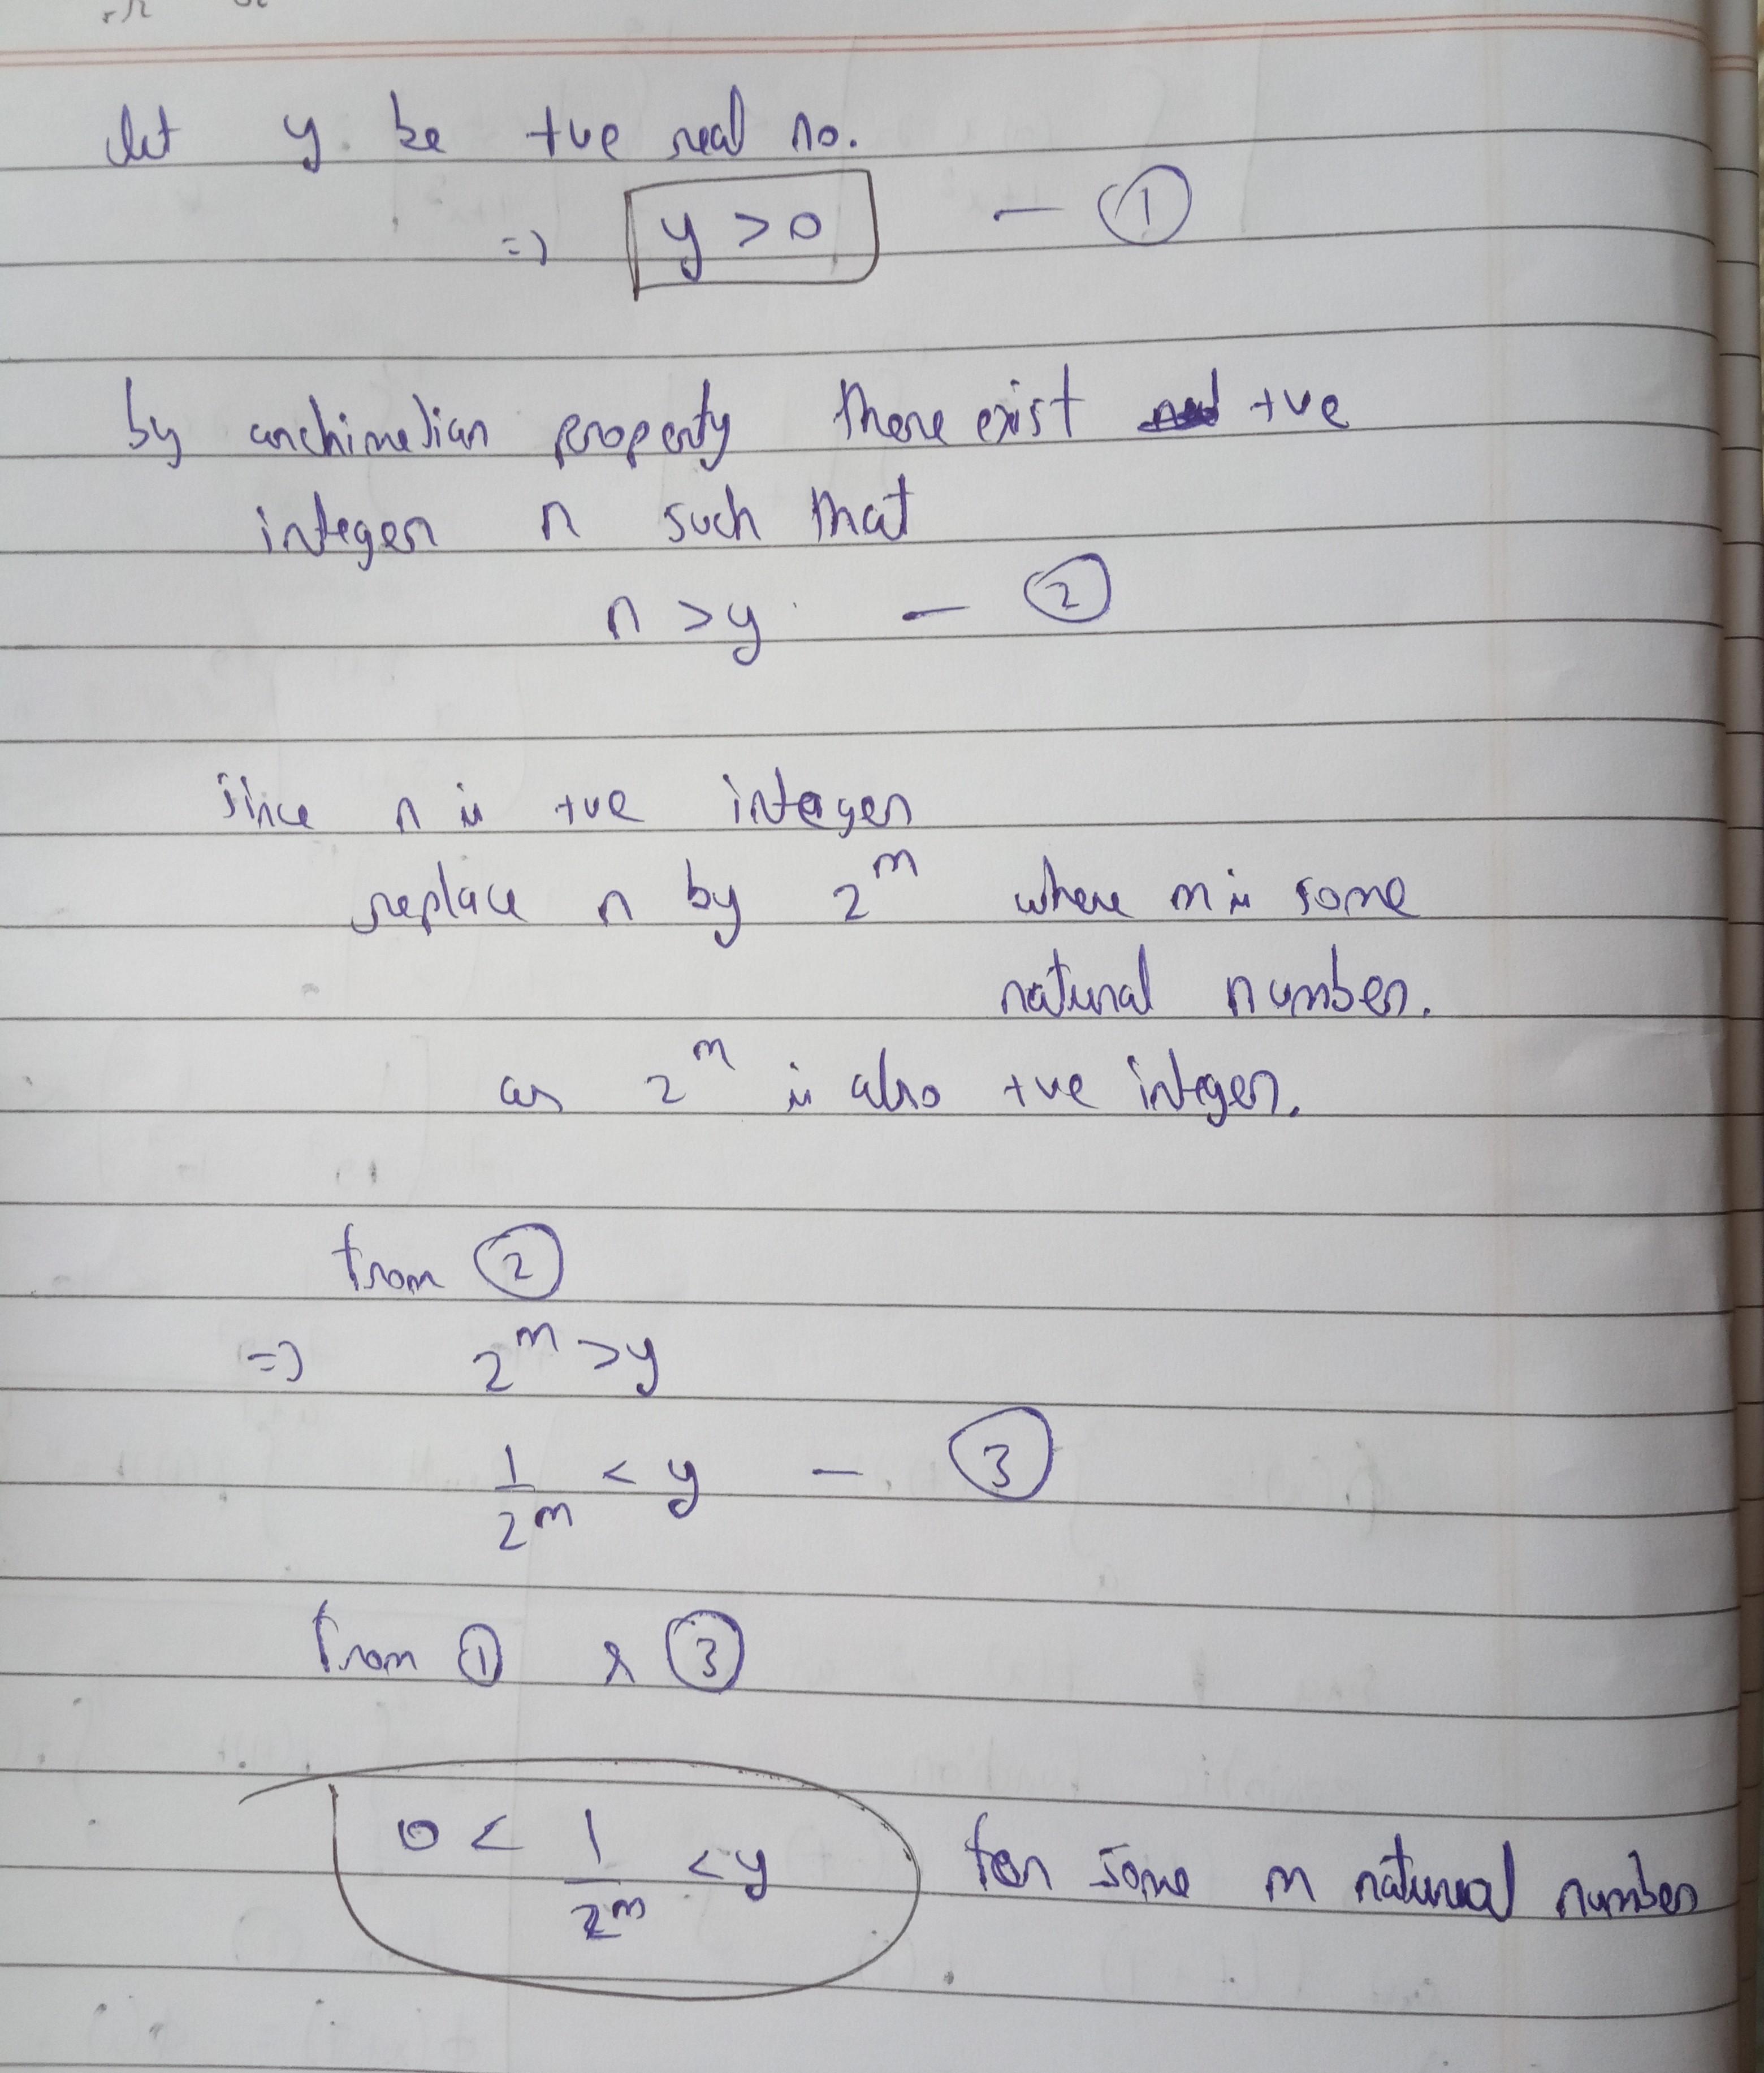 let y be +ve real no.
=> y > 0 — ①
by archimedian property there exist +ve
integer n such that
n > y — ②
since n is +ve integer
replace n by 2^m where m is some
natural number.
as 2^m is also +ve integer.
from ②
=> 2^m > y
1/2^m < y — ③
from ① & ③
0 < 1/2^m < y for some m natural number